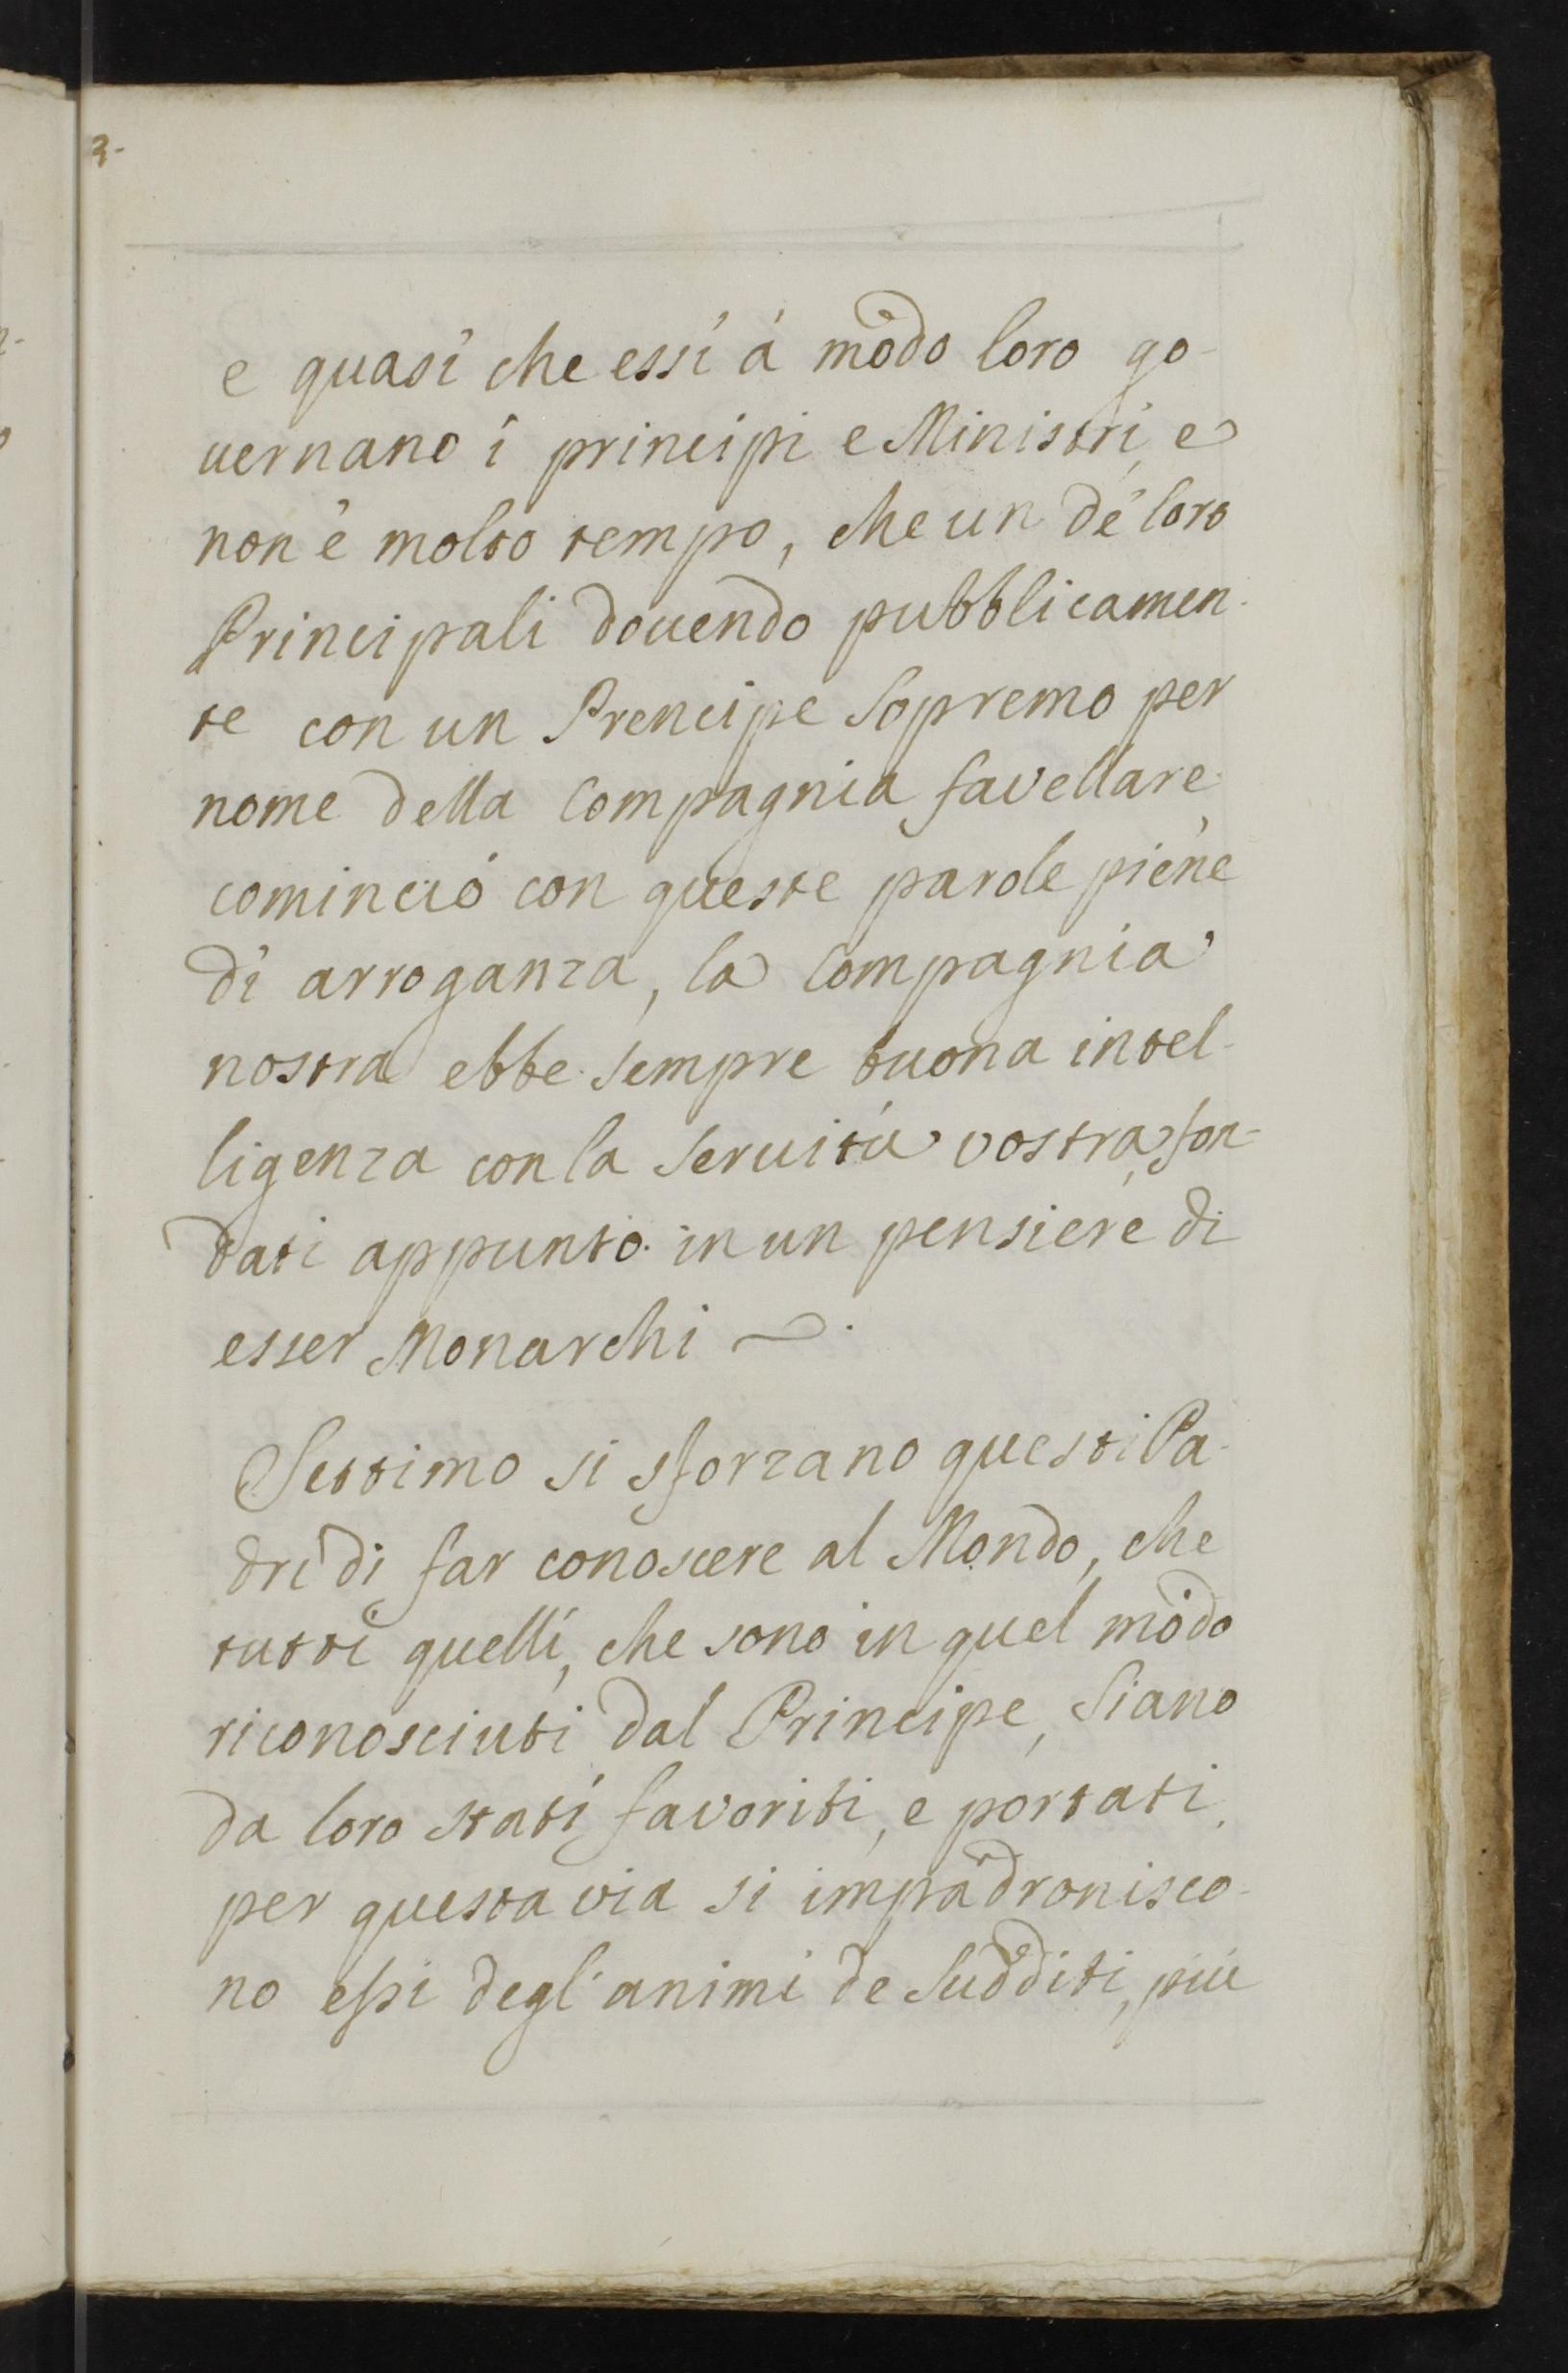 e quasi che essi à modo loro go-
uernano i principi e Ministri, e
non è molto tempo, che un dè loro
Principali douendo pubblicamen-
te con un Prencipe Sopremo per
nome della Compagnia favellare
cominciò con queste parole piene
di arroganza, la Compagnia
nostra ebbe sempre buona intel-
ligenza con la Seruitù vostra, fon-
dati appunto in un pensiere di
esser Monarchi
Settimo si sforzano questi Pa-
dri di far conoscere al Mondo, che
tutti quelli, che sono in quel modo
riconosciuti dal Principe, Siano
da loro stati favoriti, e portati,
per questa via si impadronisco-
no essi degl'animi de Sudditi, più